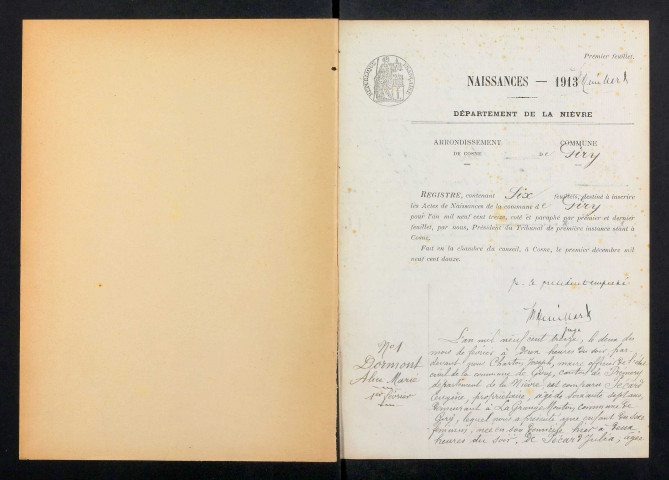 Premier feuillet.
NAISSANCES — 1913
DÉPARTEMENT DE LA NIÈVRE
ARRONDISSEMENT
DE COSNE
COMMUNE
de Giry
REGISTRE, contenant Six feuillets, destiné à inscrire
les Actes de Naissances de la commune de Giry
pour l'an mil neuf cent treize, coté et paraphé par premier et dernier
feuillet, par nous, Président du Tribunal de première instance séant à
Cosne,
Fait en la chambre du conseil, à Cosne, le premier décembre mil
neuf cent douze.
Pr le président empêché
juge
No 1
Dormont
Alice Marie
1er février
L'an mil neuf cent treize, le deux du
mois de février à deux heures du soir, par
devant nous Charton Joseph, maire officier de l'état
civil de la commune de Giry, canton de Prémery
département de la Nièvre, est comparu Sécard
propriétaire, âgé de soixante sept ans,
demeurant à La Grange Mouton, commune de
Giry, lequel nous a présenté un enfant du sexe
féminin, née en son domicile hier à deux
heures du soir, de Sécard Julia, âgée